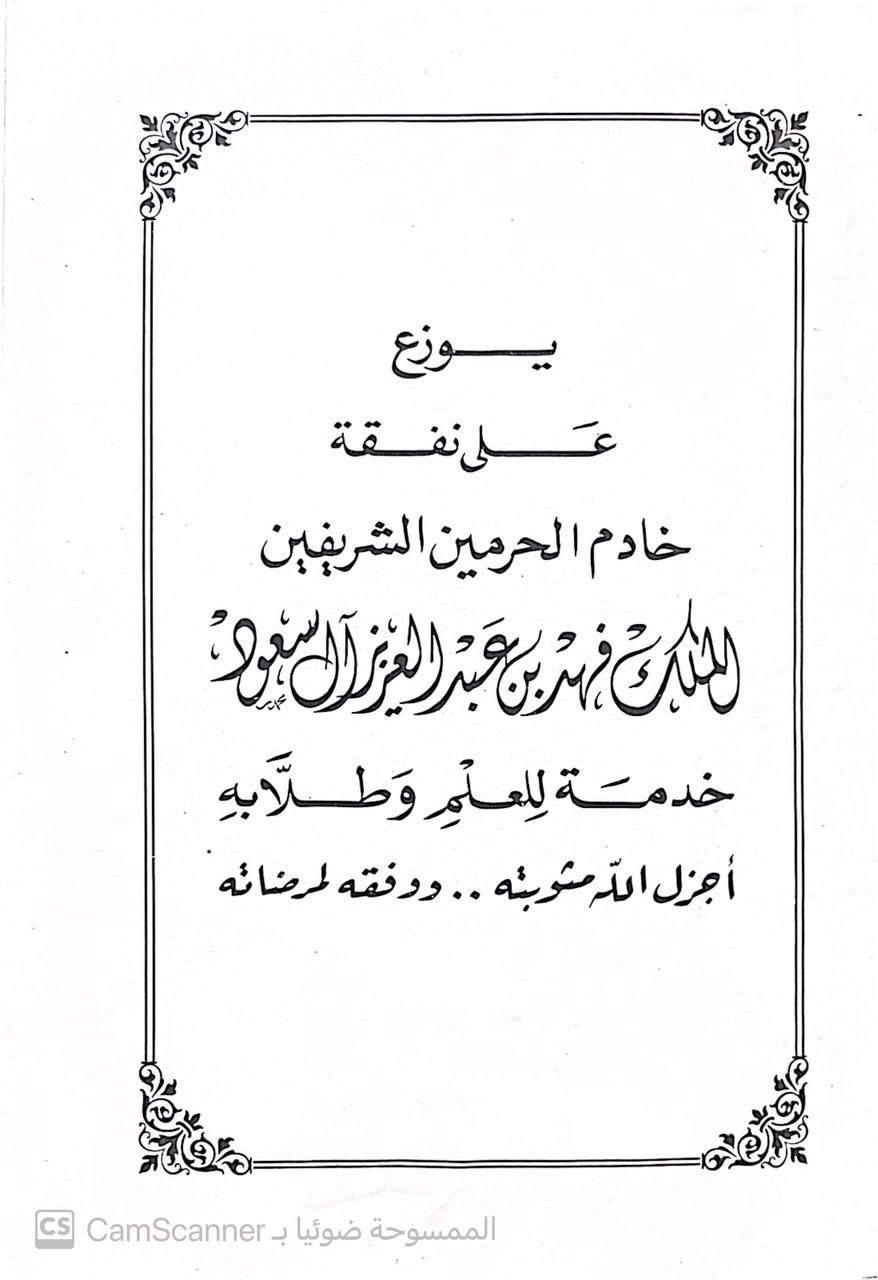 يوزع
عَلى نفقة
خادم الحرمين الشريفين
الملك فهد بن عَبد العزيز آل سعود
خدمَة لِلعلْمِ وَطلَّابهِ
أجزل اللّه مثوبته .. ووفقه لمرضاته
CS CamScanner الممسوحة ضوئيا بـ